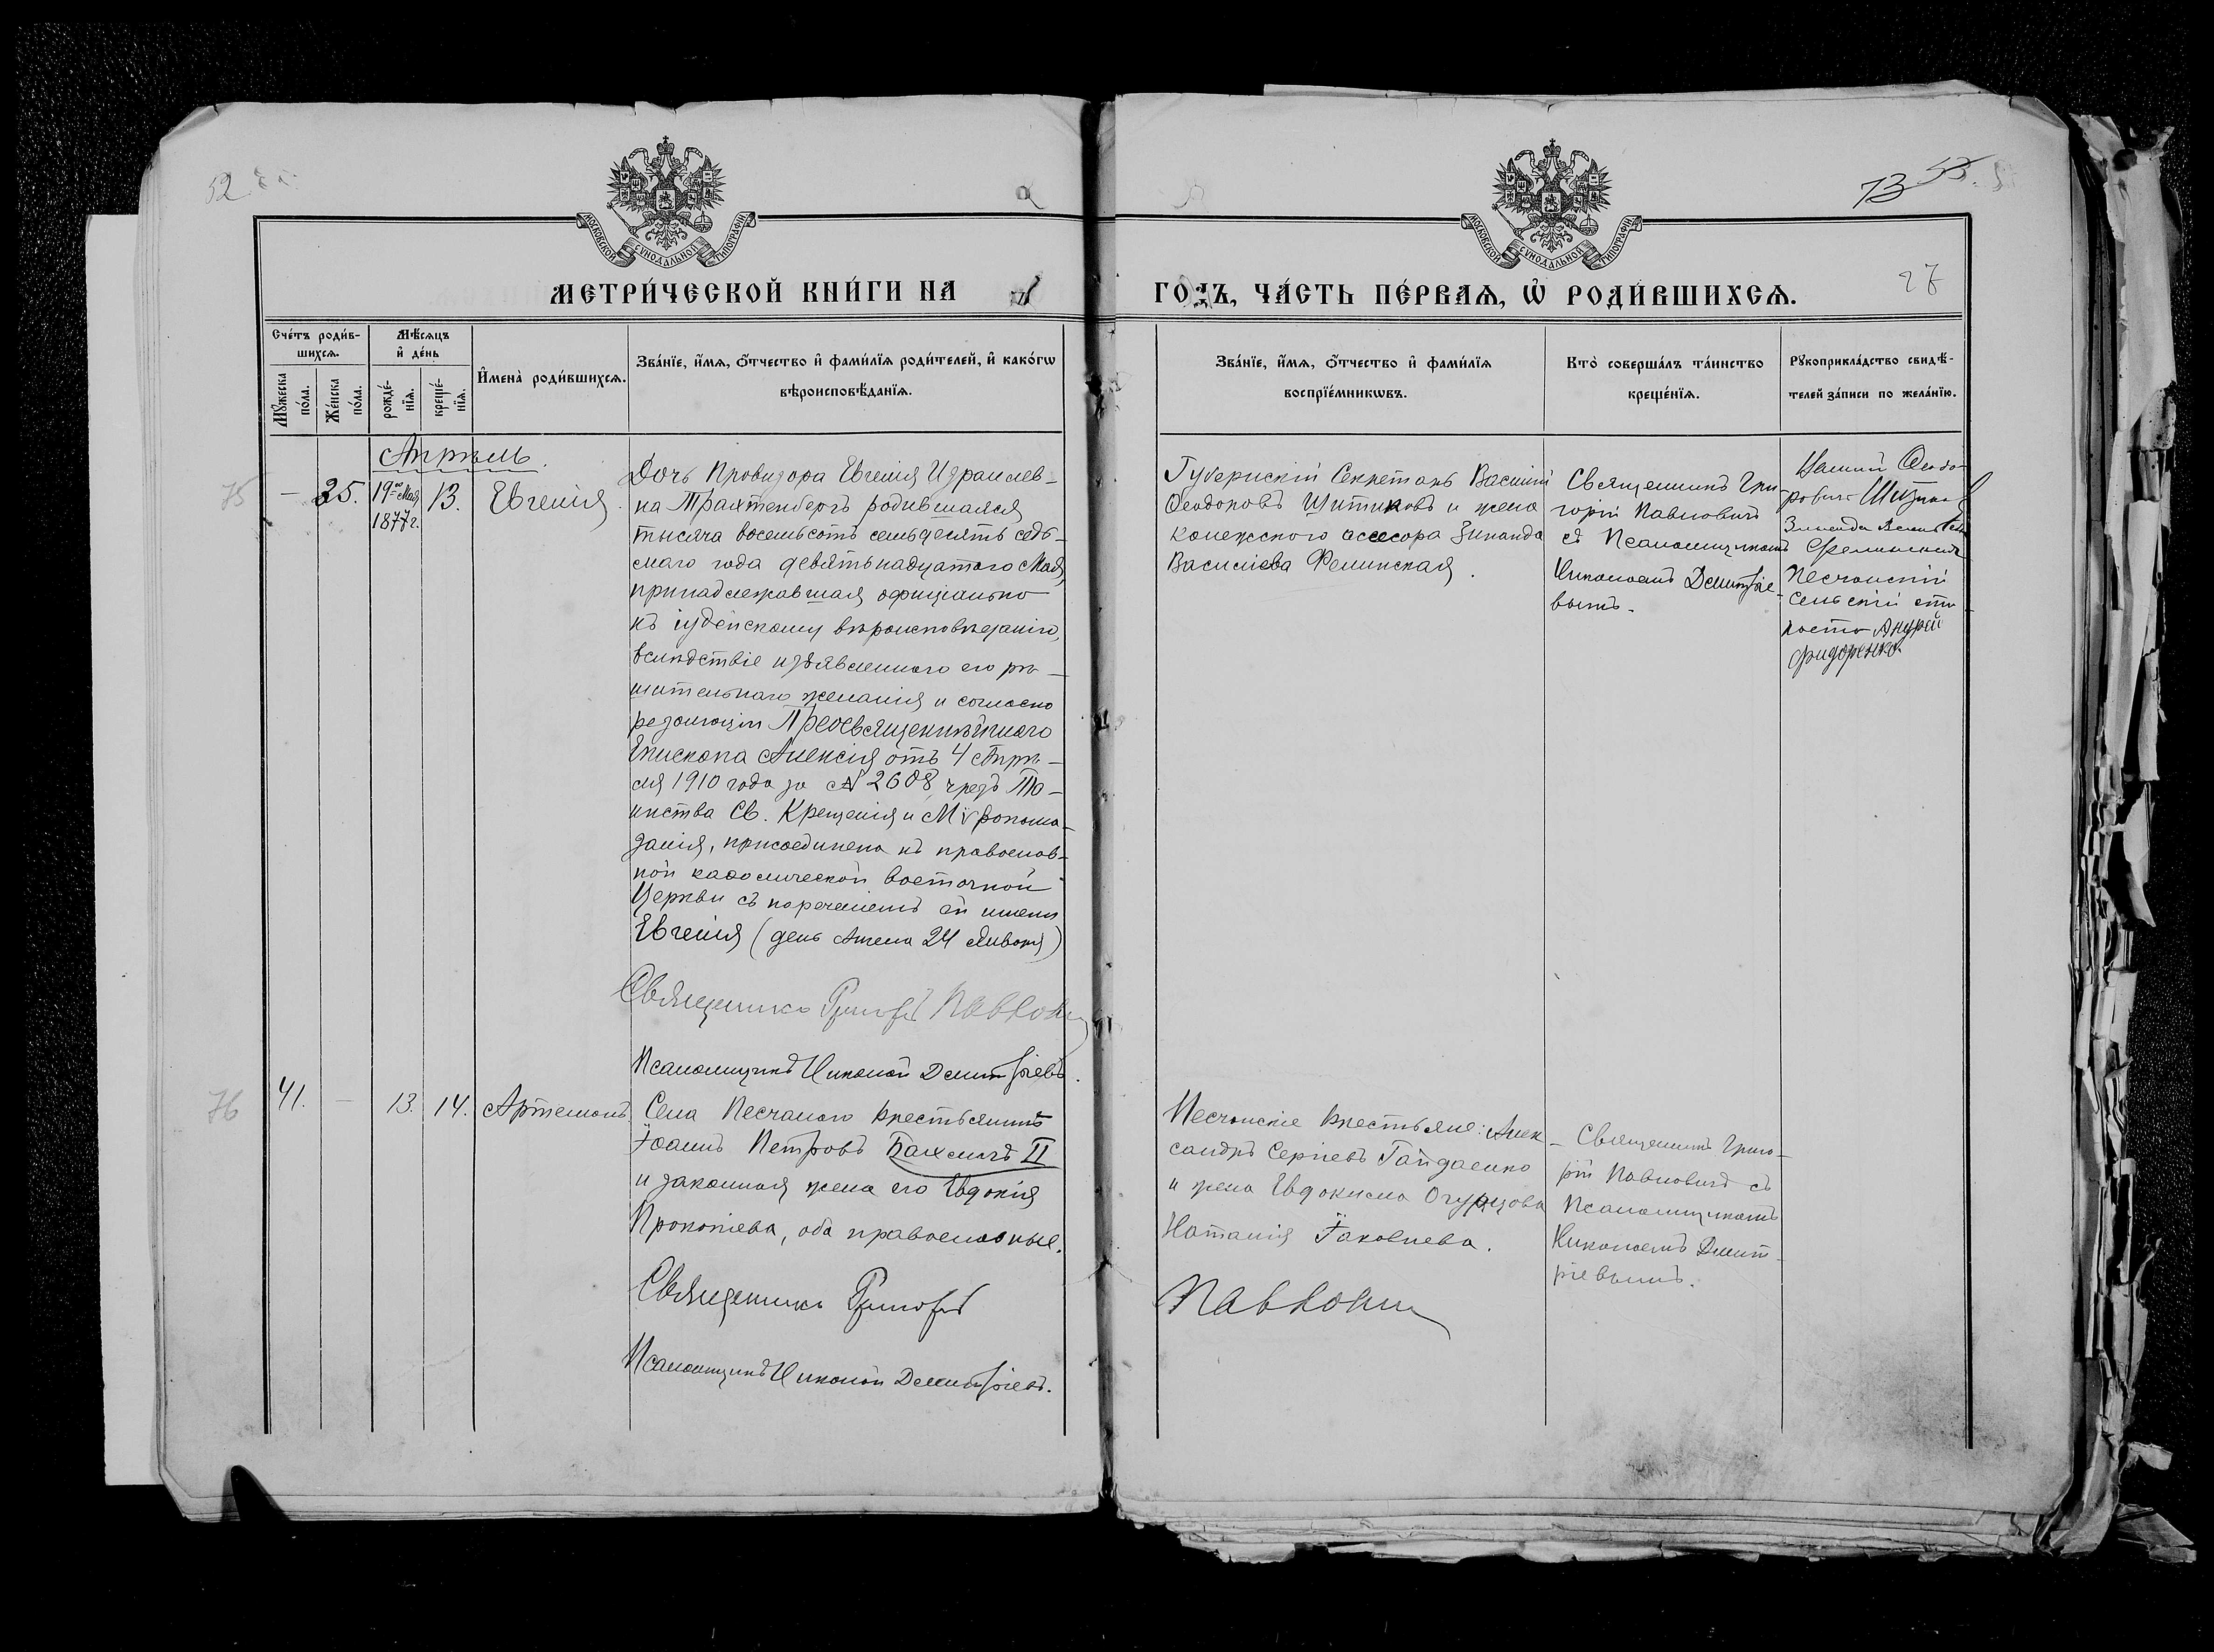 52
а
73 53.
МОСКОВСКОЙ СѴНОДАЛЬНОЙ ТИПОГРАФІИ
МОСКОВСКОЙ СѴНОДАЛЬНОЙ ТИПОГРАФІИ
МЕТРИ́ЧЕСКОЙ КНИ́ГИ НА
ГОДЪ, ЧА́СТЬ ПЕ́РВАѦ, Ѡ҆ РОДИ́ВШИХСѦ.
27
Сче́тъ роди́в-
шихсѧ.
Мꙋ́жеска
по́ла.
Же́нска
по́ла.
Мѣ́сѧцъ
и҆ де́нь
рожде́-
нїѧ.
креще́-
нїѧ.
И҆мена̀ роди́вшихсѧ.
Зва́нїе, и҆́мѧ, ѻ҆́тчество и҆ фами́лїѧ роди́телей, и҆ како́гѡ
вѣроисповѣ́данїѧ.
Зва́нїе, и҆́мѧ, ѻ҆́тчество и҆ фами́лїѧ
воспрїе́мникѡвъ.
Кто̀ соверша́лъ та́инство
креще́нїѧ.
Рꙋкоприкла́дство свидѣ́-
телей за́писи по жела́нїю.
Апрѣль.
75
— 35. 19го Мая 13. Евгенія.
1877г.
Дочь Провизора Евгенія Израилев-
на Трахтенбергъ родившаяся
тысяча восемьсотъ семьдесятъ седь-
маго года девятьнадцатаго Мая,
принадлежавшая офиціально
къ іудейскому вѣроисповѣданію,
вслѣдствіе изъявленнаго его рѣ-
шительнаго желанія и согласно
резолюціи Преосвященнѣйшаго
Епископа Алексія отъ 4 Апрѣ-
ля 1910 года за № 2608, чрезъ Та-
инства Св. Крещенія и Мѵропома-
занія, присоединена къ православ-
ной каѳолической восточной
Церкви съ нареченіемъ ей имени
Евгенія (день Ангела 24 Января)
Священникъ Григорій Павловичъ
Псаломщикъ Николай Димитріевъ.
Губернскій Секретарь Василій
Ѳеодоровъ Шитиковъ и жена
колежскаго ассесора Зинаида
Василіева Фелинская.
Священникъ Гри-
горій Павловичъ
съ Псаломщикомъ
Николаемъ Димитріе-
вымъ.
Песчанскій
Сельскій ста-
роста Андрей
Фидоренко.
76
41. — 13. 14. Артемонъ
Села Песчанаго крестьянинъ
Іоаннъ Петровъ Бахмачъ II
и законная жена его Евдокія
Прокопіева, оба православные.
Священникъ Григорій
Псаломщикъ Николай Димитріевъ.
Песчанскіе крестьяне: Алек-
сандръ Сергіевъ Гайдаенко
и жена Евдокима Огурцова
Наталія Іаковлева.
Павловичъ
Священникъ Григо-
рій Павловичъ съ
Псаломщикомъ
Николаемъ Димит-
ріевымъ.